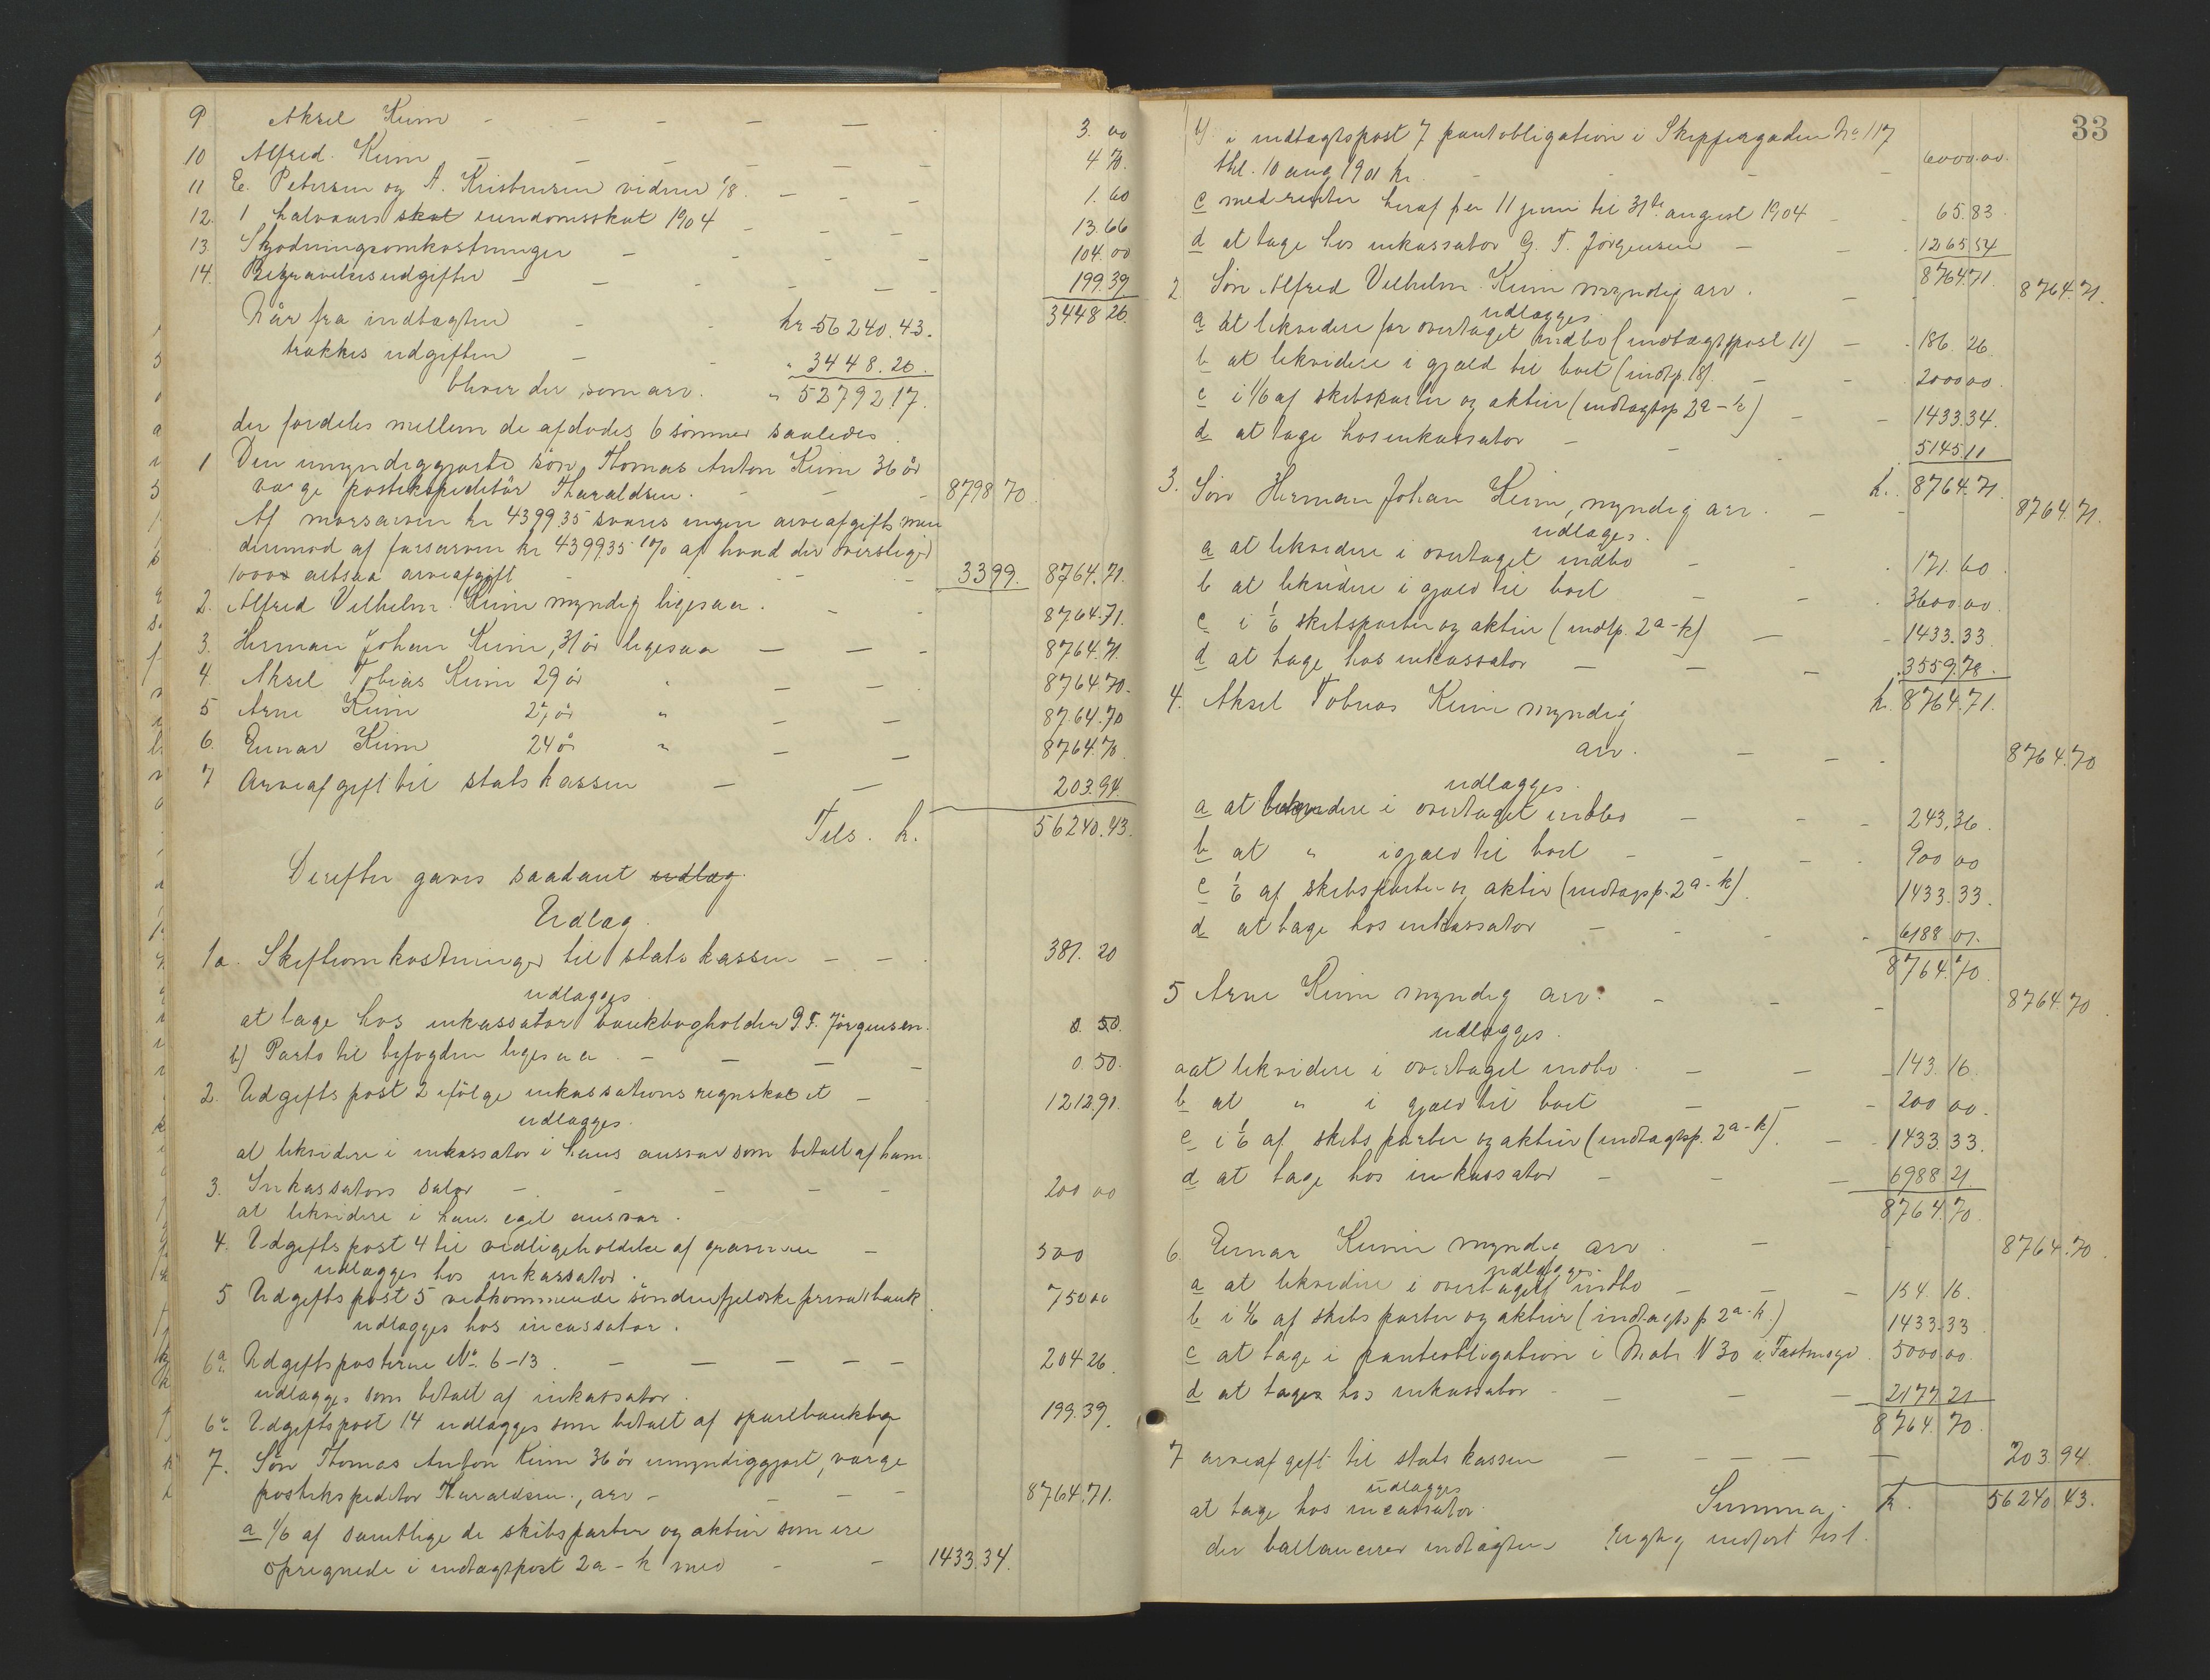 9 Aksel Keim — — — 3.00
10 Alfred Keim — — — 4.70.
11 E. Petersen og A. Kristensen vidner 1/8 — 1.60
12. 1 halvaars skat eiendomsskat 1904 — 13.66
13 Skjødningsomkostninger — 104.00
14. Begravelsesudgifter — 199.39
3448.26.
Når fra indtægten kr 56240.43.
trækkes udgiften " 3448.26.
bliver der som arv. " 52792.17.
der fordeles mellem de afdødes 6 sønner saaledes
1 Den umyndiggjorte søn, Thomas Anton Keim 36 år
værge postekspeditør Tharaldsen. 8798 70
Af morsarven kr 4399.35 svares ingen arveafgift, men
derimod af farsarven kr 4399.35 1% af hvad der overstiger
1000 altsaa arveafgift 33 99. 8764.71.
2. Alfred Vilhelm Keim myndig ligesaa. 8764.71.
3. Herman Johan Keim, 31 år ligesaa — 8764.71.
4. Aksel Tobias Keim 29 år " — 8764.70.
5 Arne Keim 27 år " — 8764.70
6. Einar Keim 24 år " — 8764.70.
7 Arveafgift til statskassen — 203.94.
Tils. k. 56240.43.
Derefter gaves saadant udlæg
Udlæg.
1a. Skifteomkostninger til statskassen — 381. 20
udlægges
at tage hos inkassator bankbogholder G. T. Jörgensen. 0.50.
b) Porto til byfogden ligesaa — 0.50.
2. Udgiftspost 2 ifölge inkassators regnskabet — 1212.91.
udlægges.
at likvidere i inkassator i hans ansvar som betalt af ham.
3. Inkassators salær — 200 00
at likvidere i hans eget ansvar.
4. Udgiftspost 4 til vedligeholdelse af gravene — 300
udlægges hos inkassator.
5 Udgiftspost 5 vedkommende söndenfjeldske privatbank 750 00
udlægges hos incassator.
6a Udgiftsposterne No. 6-13 — 204 26.
udlægges som betalt af inkassator.
6b Udgiftspost 14 udlægges som betalt af sparebankbog 199.39.
7. Søn Thomas Anton Keim 36 år umyndiggjort, værge
postekspeditør Tharaldsen, arv — 8764.71.
a 1/6 af samtlige de skibsparter og aktier som ere
opregnede i indtægtspost 2a-k med — 1433.34.
33
b i indtægtspost 7 pantobligation i Skippergaden No 117
thl. 10 aug 1901 kr — 6000.00.
c med renter heraf fra 11 juni til 31te august 1904 — 65.83
d at tage hos inkassator G. T. Jörgensen — 1265.54
8764.71.
2 Søn Alfred Vilhelm Keim myndig arv. — 8764.71.
udlægges.
a at likvidere for overtaget indbo (indtægtspost 11) — 186. 26
b at likvidere i gjæld til boet (indtp. 18) — 2000 00
c i 1/6 af skibsparter og aktier (indtægtsp 2a-k) — 1433.34.
d at tage hos inkassator — 5145.11
k. 8764.71.
3. Søn Herman Johan Keim, myndig arv. — 8764.71.
udlægges.
a at likvidere i overtaget indbo — 171.60
b at likvidere i gjæld til boet — 3600.00
c i 1/6 skibsparter og aktier (indtp. 2a-k) — 1433.33
d at tage hos inkassator — 3559.78.
k. 8764.71.
4. Aksel Tobias Keim myndig
arv. — 8764.70
udlægges.
a at likvidere i overtaget indbo — 243.36.
b at " i gjæld til boet — 900 00
c 1/6 af skibsparter og aktier (indtægtsp. 2a-k). 1433.33.
d at tage hos inkassator — 6188 01.
8764.70.
5 Arne Keim myndig arv. — 8764.70
udlægges.
a at likvidere i overtaget indbo. — 143 16.
b at " i gjæld til boet — 200 00.
c i 1/6 af skibsparter og aktier (indtægtsp. 2a-k). — 1433.33.
d at tage hos inkassator — 6988 21
8764.70
6. Einar Keim myndig arv. — 8764.70.
udlægges.
a at likvidere i overtaget indbo — 154. 16.
b i 1/6 af skibsparter og aktier (indtægtsp 2a-k.) 1433.33
c at tage i pantobligation i Matr N 30 i 5000.00
d at tages hos inkassator — 2177 21
8764.70.
7 arveafgift til statskassen — 203.94.
udlægges
at tage hos incassator. Summa, k. 56240 43.
der ballancerer indtægten Rigtig indført test.